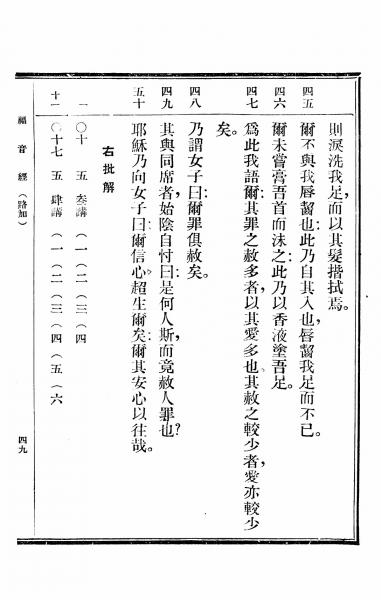 則淚洗我足，而以其髮揩拭焉。
四五 爾不與我唇齧也：此乃自其入也，唇齧我足而不已。
四六 爾未嘗膏吾首而沬之：此乃以香液塗吾足。
四七 爲此我語爾：其罪之赦多者，以其愛多也：其赦之較少者，愛亦較少
矣。
四八 乃謂女子曰：爾罪俱赦矣。
四九 其與同席者，始陰自忖曰：是何人斯，而竟赦人罪也？
五十 耶穌乃向女子曰：爾信心超生爾矣：爾其安心以往哉。
右批解
一 〇十 五 叁講 （一（二（三（四
十一 〇十七 五 肆講 （一（二（三（四（五（六
福音經（路加） 四九